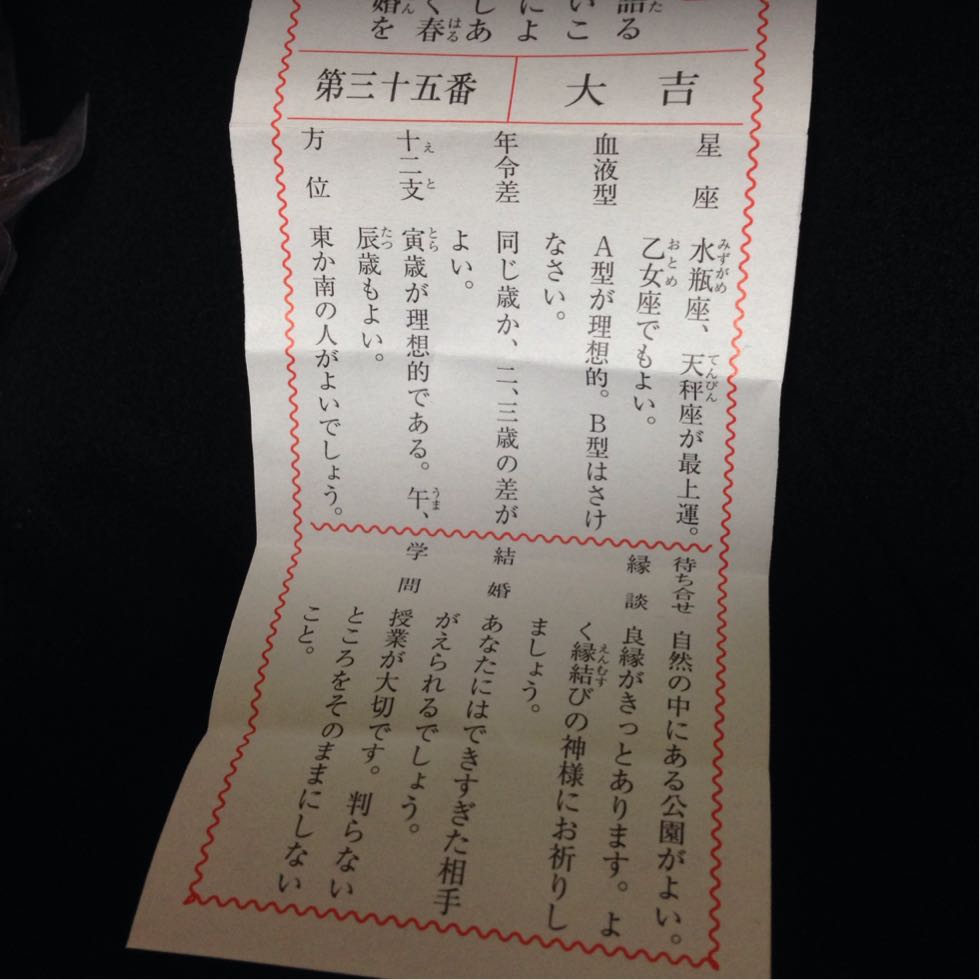 語る
いこ
によ
しあ
く春
婚を
大吉
第三十五番
星座 水瓶座、天秤座が最上運。
乙女座でもよい。
血液型 A型が理想的。B型はさけ
なさい。
年令差 同じ歳か、二、三歳の差が
よい。
十二支 寅歳が理想的である。午、
辰歳もよい。
方位 東か南の人がよいでしょう。
待ち合せ 自然の中にある公園がよい。
縁談 良縁がきっとあります。よ
く縁結びの神様にお祈りし
ましょう。
結婚 あなたにはできすぎた相手
がえられるでしょう。
学問 授業が大切です。判らない
ところをそのままにしない
こと。